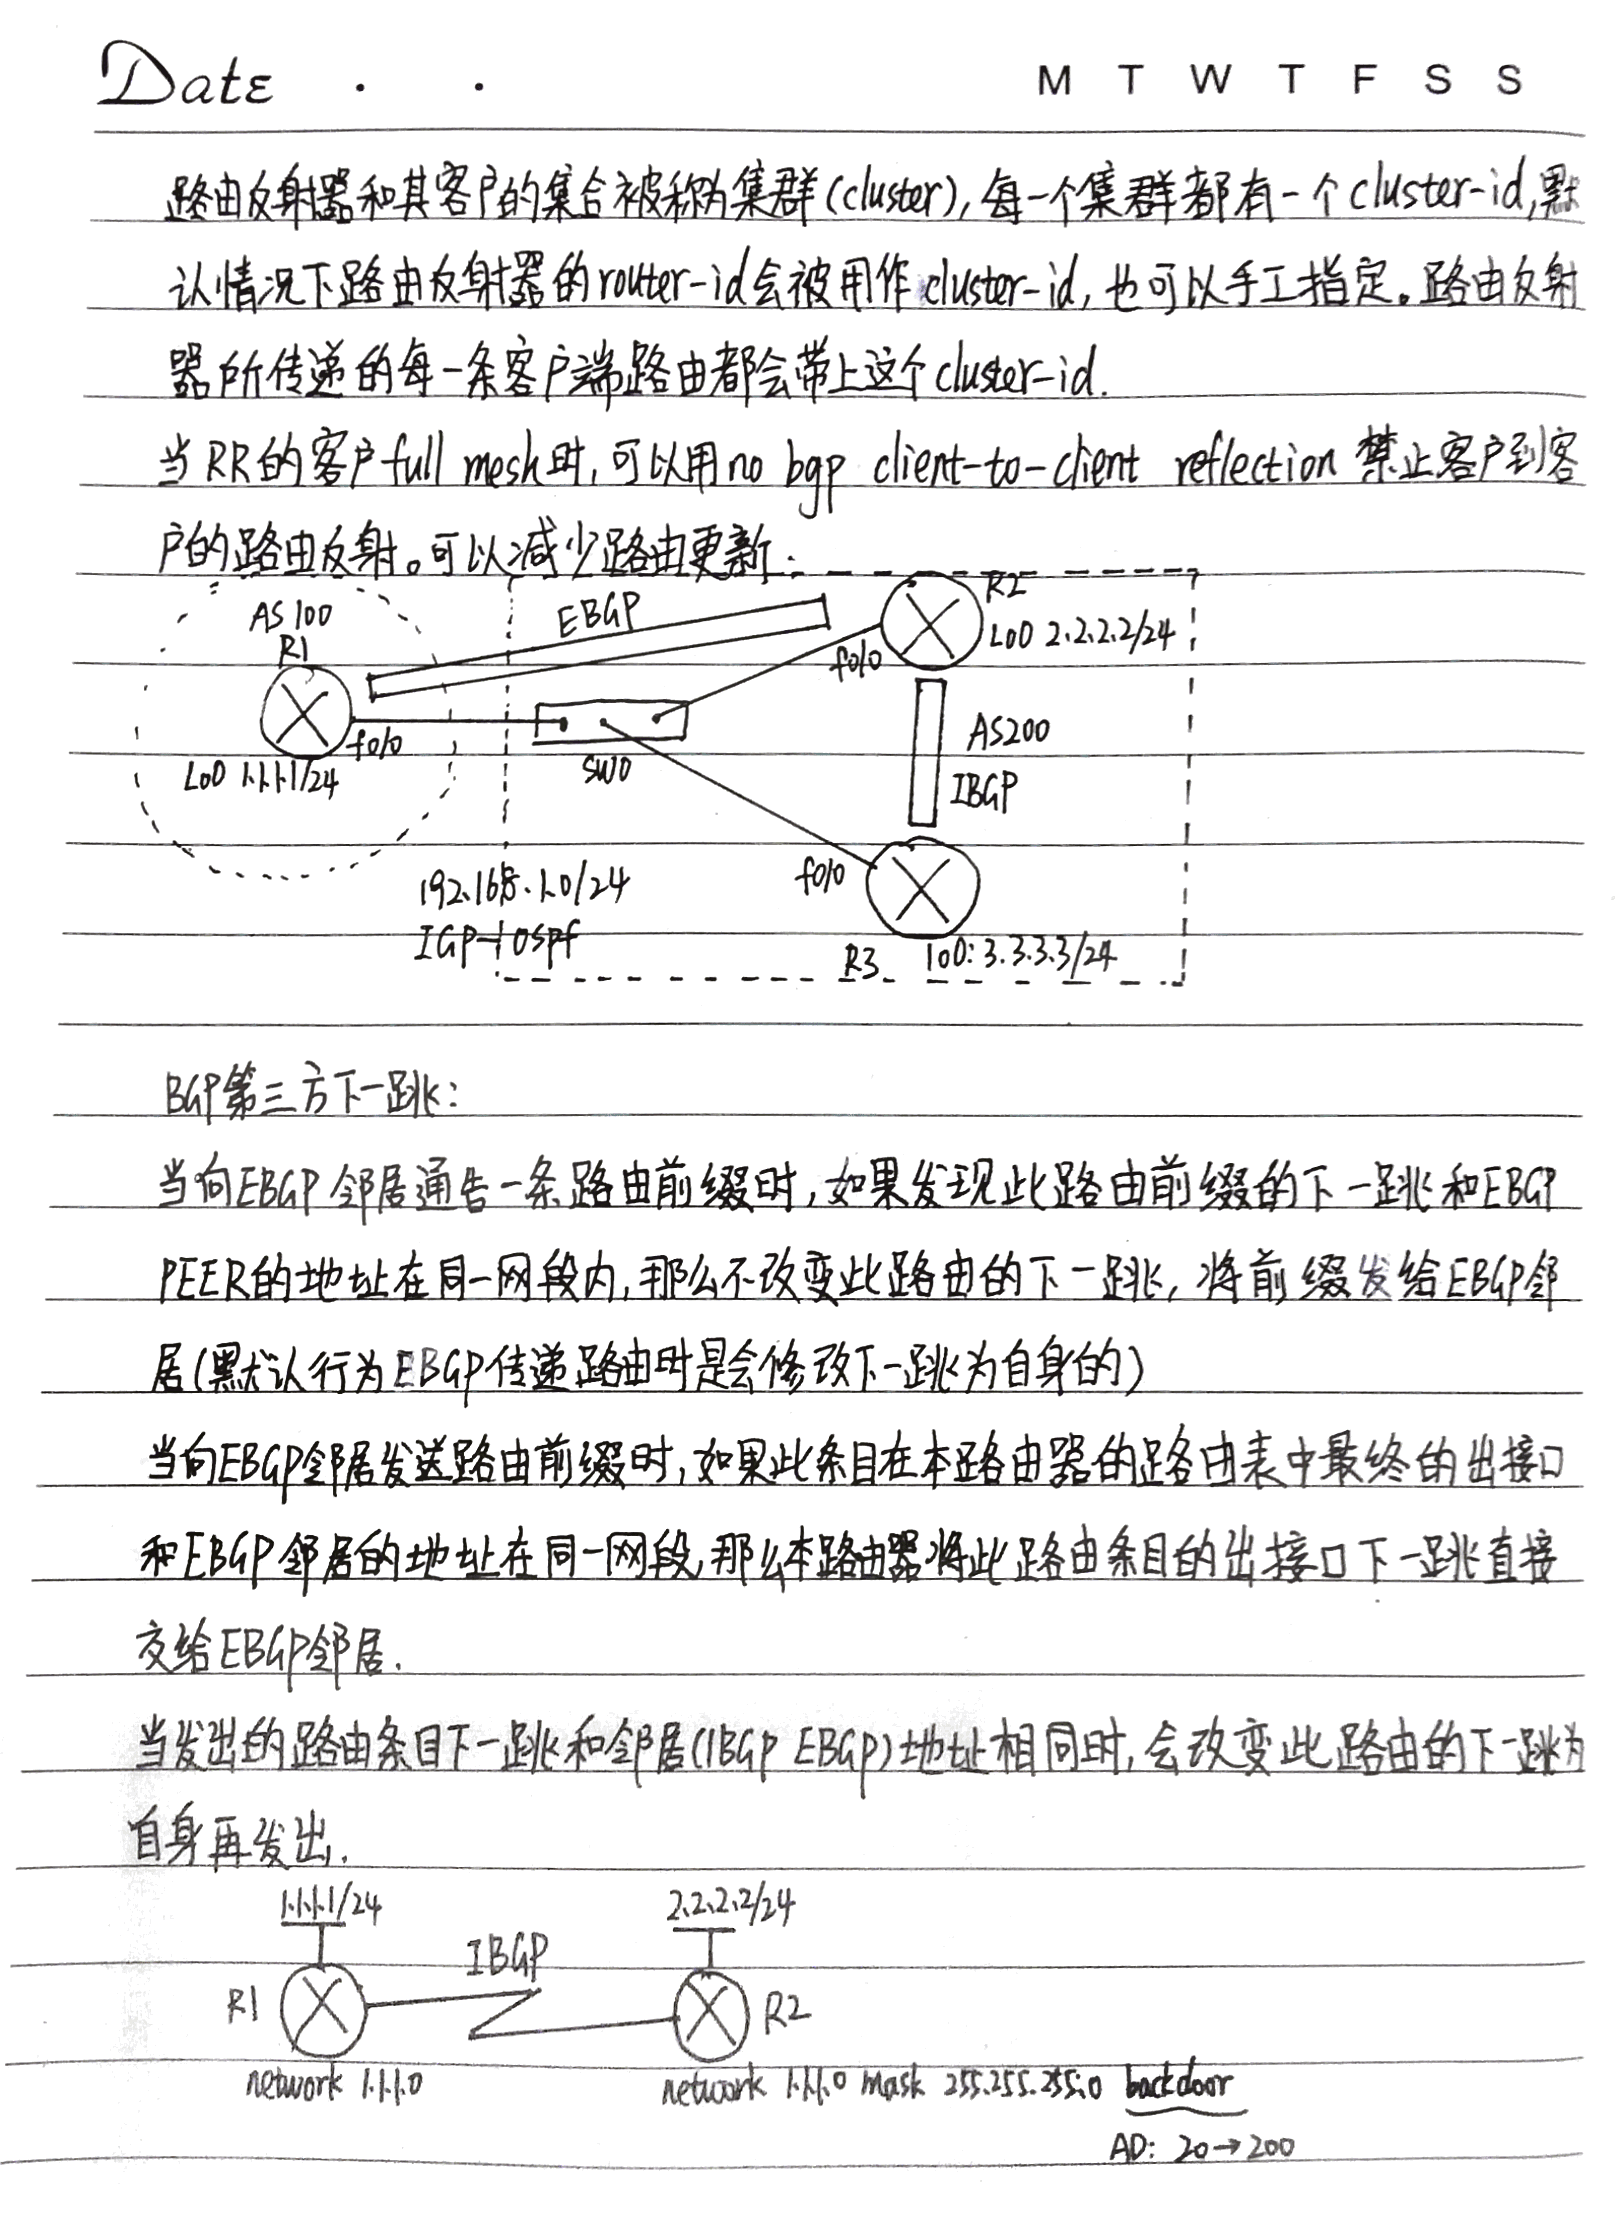 Date . . M T W T F S S
路由反射器和其客户的集合被称为集群(cluster),每一个集群都有一个cluster-id,默
认情况下路由反射器的router-id会被用作cluster-id,也可以手工指定。路由反射
器所传递的每一条客户端路由都会带上这个cluster-id.
当RR的客户full mesh时,可以用no bgp client-to-client reflection 禁止客户到客
户的路由反射。可以减少路由更新.
AS100
R1
EBGP
R2
Lo0 2.2.2.2/24
f0/0
f0/0
Lo0 1.1.1.1/24
SW0
AS200
IBGP
f0/0
192.168.1.0/24
IGP-ospf
R3
lo0:3.3.3.3/24
BGP第三方下一跳:
当向EBGP邻居通告一条路由前缀时,如果发现此路由前缀的下一跳和EBGP
PEER的地址在同一网段内,那么不改变此路由的下一跳,将前缀发给EBGP邻
居(默认行为EBGP传递路由时是会修改下一跳为自身的)
当向EBGP邻居发送路由前缀时,如果此条目在本路由器的路由表中最终的出接口
和EBGP邻居的地址在同一网段,那么本路由器将此路由条目的出接口下一跳直接
交给EBGP邻居.
当发出的路由条目下一跳和邻居(IBGP EBGP)地址相同时,会改变此路由的下一跳为
自身再发出.
1.1.1.1/24
2.2.2.2/24
IBGP
R1
R2
network 1.1.1.0
network 1.1.1.0 mask 255.255.255.0 backdoor
AD: 20→200